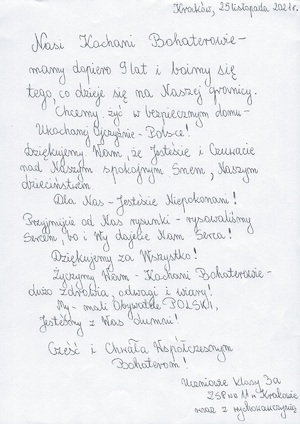 Kraków, 25 listopada 2021r.
Nasi Kochani Bohaterowie -
mamy dopiero 9 lat i boimy się
tego, co dzieje się na Naszej granicy.
Chcemy żyć w bezpiecznym domu -
Ukochanej Ojczyźnie - Polsce!
Dziękujemy Wam, że Jesteście i Czuwacie
nad Naszym spokojnym Snem, Naszym
dzieciństwem
Dla Nas - Jesteście Niepokonani!
Przyjmijcie od Nas rysunki - rysowaliśmy
Sercem, bo i Wy dajecie Nam Serca!
Dziękujemy za Wszystko!
Życzymy Wam - Kochani Bohaterowie -
dużo zdrowia, odwagi i wiary!
My - mali Obywatele POLSKI,
Jesteśmy z Was dumni!
Cześć i Chwała Współczesnym
Bohaterom!
Uczniowie klasy 3a
ZSP nr 11 w Krakowie
wraz z wychowawczynią